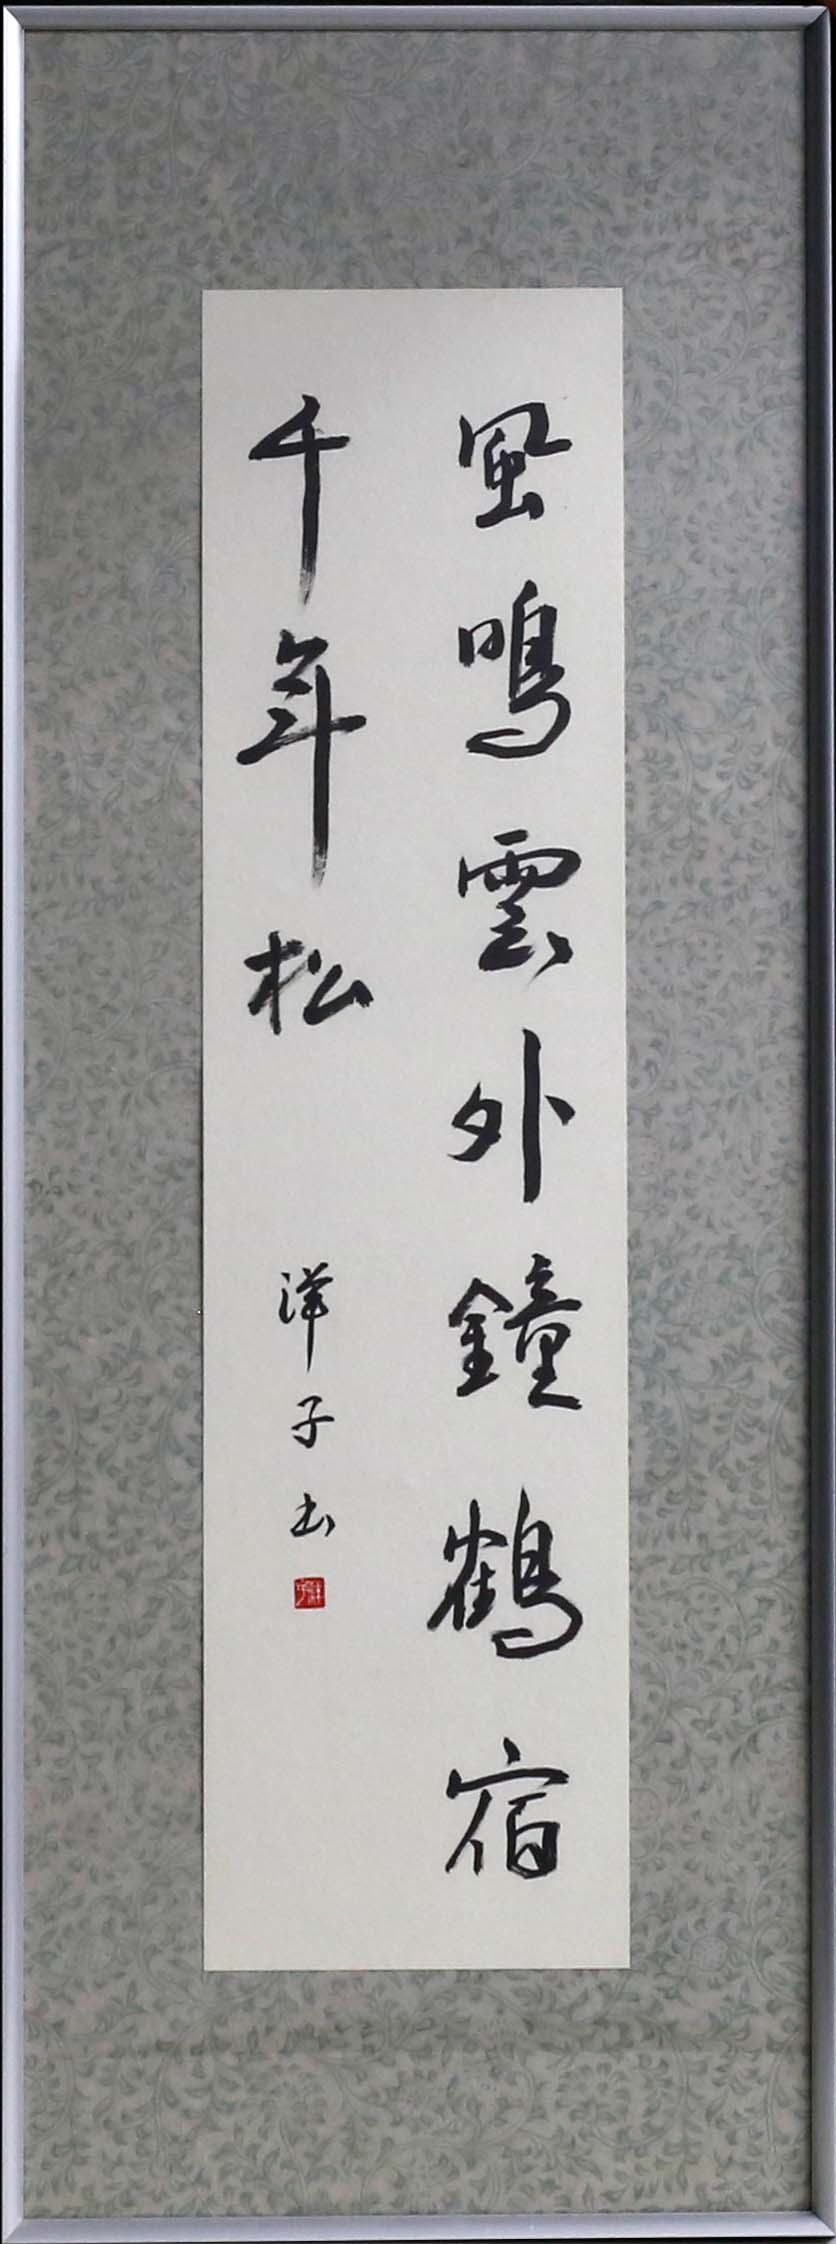 風鳴雲外鐘鶴宿
千年松
洋子书